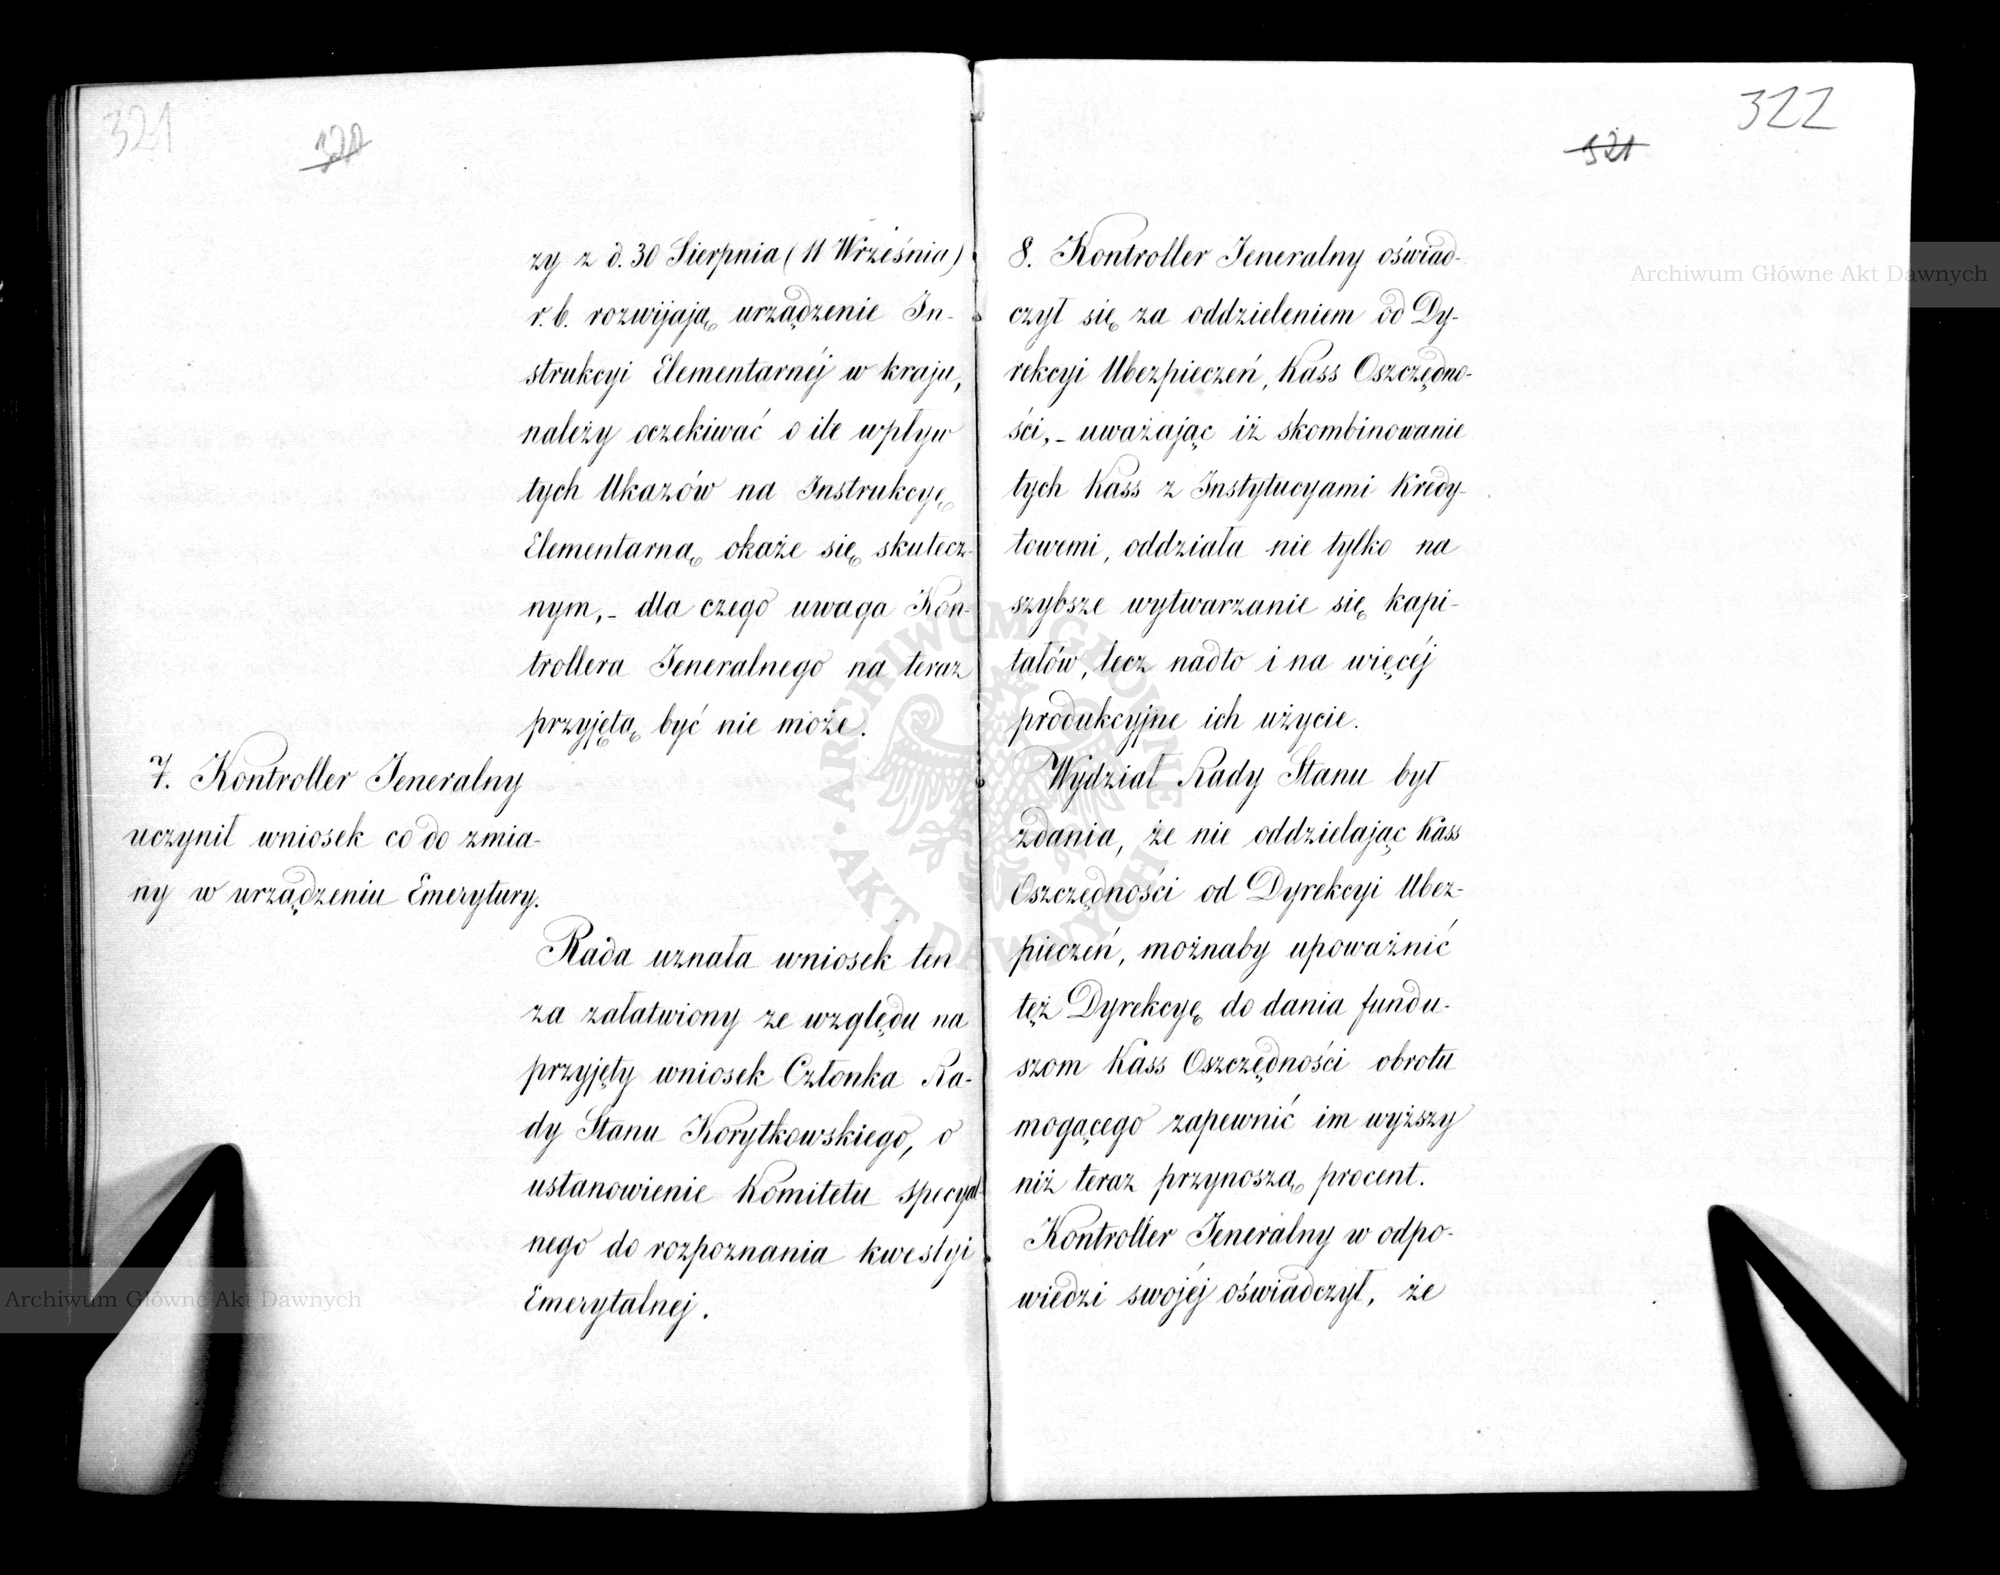 321
320
zy z d. 30 Sierpnia (11 Września)
r. b. rozwijają urządzenie In-
strukcyi Elementarnéj w kraju,
należy oczekiwać o ile wpływ
tych Ukazów na Instrukcyę
Elementarną okaże się skutecz-
nym,- dla czego uwaga Kon-
trollera Jeneralnego na teraz
przyjętą być nie może.
7. Kontroller Jeneralny
uczynił wniosek co do zmia-
ny w urządzeniu Emerytury.
Rada uznała wniosek ten
za załatwiony ze względu na
przyjęty wniosek Członka Ra-
dy Stanu Korytkowskiego, o
ustanowienie Komitetu specyal
nego do rozpoznania kwestyi
Emerytalnej.
322
321
8. Kontroller Jeneralny oświad-
czył się za oddzieleniem od Dy-
rekcyi Ubezpieczeń, Kass Oszczędno-
ści,- uważając iż skombinowanie
tych Kass z Instytucyami Kredy-
towemi, oddziała nie tylko na
szybsze wytwarzanie się kapi-
tałów, lecz nadto i na więcéj
produkcyjne ich użycie.
Wydział Rady Stanu był
zdania, że nie oddzielając Kass
Oszczędności od Dyrekcyi Ubez-
pieczeń, możnaby upoważnić
też Dyrekcyę do dania fundu-
szom Kass Oszczędności obrotu
mogącego zapewnić im wyższy
niż teraz przynoszą procent.
Kontroller Jeneralny w odpo-
wiedzi swojéj oświadczył, że
Archiwum Główne Akt Dawnych
Archiwum Główne Akt Dawnych
ARCHIWUM GŁÓWNE AKT DAWNYCH